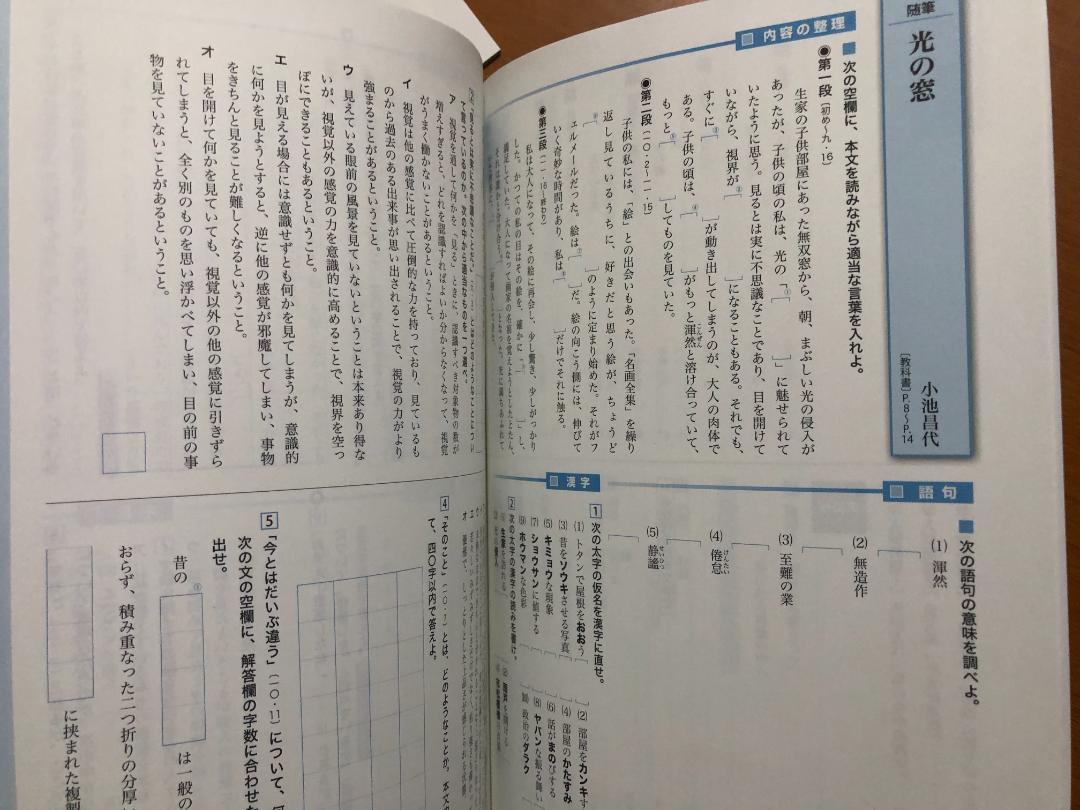 随筆
光の窓
小池昌代
〔教科書〕P.8〜P.14
内容の整理
次の空欄に、本文を読みながら適当な言葉を入れよ。
●第一段〔初め〜九・16〕
生家の子供部屋にあった無双窓から、朝、まぶしい光の侵入が
あったが、子供の頃の私は、光の「① 」に魅せられて
いたように思う。見るとは実に不思議なことであり、目を開けて
いながら、視界が② になることもある。それでも、
すぐに③ が動き出してしまうのが、大人の肉体で
ある。子供の頃は、④ がもっと渾然と溶け合っていて、
もっと⑤ してものを見ていた。
●第二段〔一〇・2〜一一・15〕
子供の私には、「絵」との出会いもあった。「名画全集」を繰り
返し見ているうちに、好きだと思う絵が、ちょうど
⑥ のように定まり始めた。それがフ
ェルメールだった。絵は⑦ だ。絵の向こう側には、伸びて
いく奇妙な時間があり、私は⑧ だけでそれに触る。
●第三段〔一一・16〜終わり〕
私は大人になって、その絵に再会し、少し驚き、少しがっかり
した。かつての私の目はその絵を、確かに「⑨ 」し、
満足していた。大人になって画家の名前を覚えようとしたとたん、
語句
次の語句の意味を調べよ。
(1) 渾然
(2) 無造作
(3) 至難の業
(4) 倦怠 けんたい
(5) 静謐 せいひつ
漢字
1 次の太字の仮名を漢字に直せ。
(1) トタンで屋根をおおう
(2) 部屋をカンキす
(3) 昔をソウキさせる写真
(4) 部屋のかたすみ
(5) キミョウな現象
(6) 話がまのびする
(7) ショウサンに値する
(8) ヤバンな振る舞い
(9) ホウマンな色彩
(10) 政治のダラク
2 次の太字の漢字の読みを書け。
ア 視覚を通して何かを「見る」ときに、認識すべき対象物の数が
増えすぎると、どれを認識すればよいか分からなくなって、視覚
がうまく働かないことがあるということ。
イ 視覚は他の感覚に比べて圧倒的な力を持っており、見ているも
のから過去のある出来事が思い出されることで、視覚の力がより
強まることがあるということ。
ウ 見えている眼前の風景を見ていないということは本来あり得な
いが、視覚以外の感覚の力を意識的に高めることで、視界を空っ
ぽにできることもあるということ。
エ 目が見える場合には意識せずとも何かを見てしまうが、意識的
に何かを見ようとすると、逆に他の感覚が邪魔してしまい、事物
をきちんと見ることが難しくなるということ。
オ 目を開けて何かを見ていても、視覚以外の他の感覚に引きずら
れてしまうと、全く別のものを思い浮かべてしまい、目の前の事
物を見ていないことがあるということ。
4 「そのこと」(一〇・7)とは、どのようなことか。本文
て、四〇字以内で答えよ。
5 「今とはだいぶ違う」(一〇・11)について、
次の文の空欄に、解答欄の字数に合わせ
出せ。
昔の① は一般の
おらず、積み重なった二つ折りの分厚
に挟まれた複製